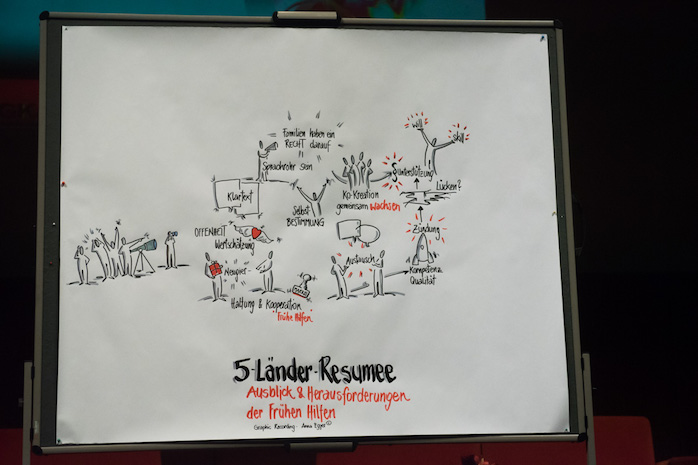 Familien haben ein
RECHT darauf
Sprachrohr sein
will
skill
Unterstützung
Lücken?
Klartext
Selbst-
BESTIMMUNG
Ko-Kreation
gemeinsam wachsen
OFFENHEIT
Wertschätzung
Zündung
Neugier
Austausch
Kompetenz
Qualität
Haltung & Kooperation
Frühe Hilfen
5-Länder-Resumee
Ausblick & Herausforderungen
der Frühen Hilfen
Graphic Recording - Anna Egger